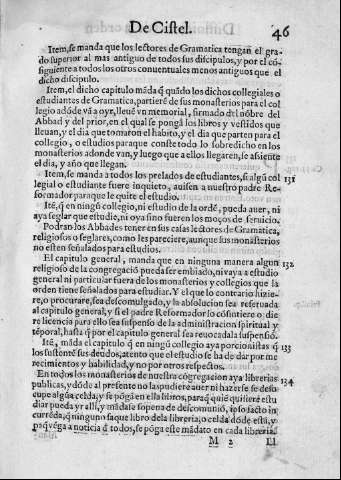 De Cistel.
46
Item, se manda que los lectores de Gramatica tengan el gra-
do superior al mas antiguo de todos sus dicipulos, y por el cõ-
siguiente a todos los otros conuentuales menos antiguos que el
dicho dicipulo.
Item, el dicho capitulo mãda q̃ quãdo los dichos collegiales o
estudiantes de Gramatica, partierẽ de sus monasterios para el col
legio adõde vã a oyr, lleuẽ vn memorial, firmado del nõbre del
Abbad y del prior, en el qual se pongã los libros y vestidos que
lleuan, y el dia que tomaron el habito, y el dia que parten para el
collegio, o estudios para que conste todo lo sobredicho en los
monasterios adonde van, y luego que a ellos llegaren, se assiente
el dia, y año que llegan.
Item, se manda a todos los prelados de estudiantes, si algũ col
legial o estudiante fuere inquieto, auisen a nuestro padre Re-
formador para que le quite el estudio.
131
Itẽ, q̃ en ningũ collegio, ni estudio de la ordẽ, pueda auer, ni
aya seglar que estudie, ni oya sino fueren los moços de seruicio.
Podran los Abbades tener en sus casas lectores de Gramatica,
religiosos o seglares, como les pareciere, aunque sus monasterios
no esten señalados para estudios.
El capitulo general, manda que en ninguna manera algun
132
religioso de la congregaciõ pueda ser embiado, ni vaya a estudio
general ni particular fuera de los monasterios y collegios que la
orden tiene señalados para estudiar. Y el que lo contrario hizie-
re, o procurare, sea descomulgado, y la absolucion sea reseruada
al capitulo general, y si el padre Reformador lo cõsintiere o die
re licencia para ello sea suspenso de la administracion spiritual y
tẽporal, hasta q̃ por el capitulo general sea reuocada la suspensiõ.
Itẽ, mãda el capitulo q̃ en ningũ collegio aya porcionistas q̃
133
los sustentẽ sus deudos, atento que el estudio se ha de dar por me
recimientos y habilidad, y no por otros respectos.
En todos los monasterios de nuestra cõgregacion aya librerias
134
publicas, y dõde al presente no las pudiere auer ni hazerse se deso
cupe algũa celda, y se põgã en ella libros, para q̃ quiẽ quisiere estu
diar pueda yr alli, y mãdase so pena de descomuniõ, ipso facto in
currẽda, q̃ ninguno saque libro de la libreria, o celda dõde estã, y
paq̃ vẽga a noticia d̃ todos, se põga este mãdato en cada libreria.
M 2
El